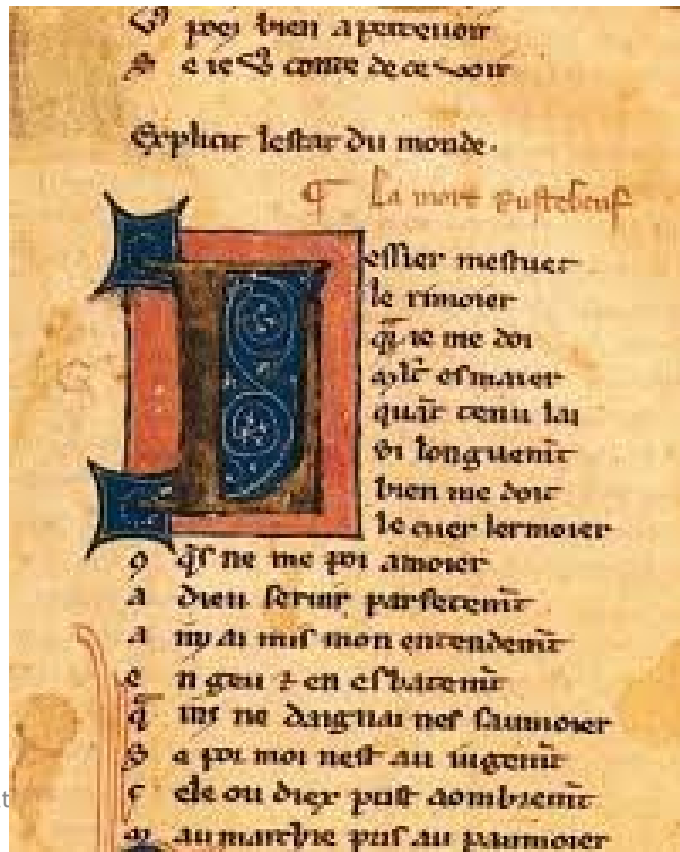 poez bien aperceuoir
conte de ce voir
Explicit lestat du monde.
¶ La mort rustebeuf
Lessier mestuet
le rimoier
q̄r ie me doi
ml̄t esmaier
quāt tenu lai
si longuem̄t
bien me doit
le cuer lermoier
o q̄s ne me poi amoier
a dieu seruir parfetem̄t
a ai mis mon entendem̄t
e n geu ⁊ en esbatem̄t
ne daignai nes saumoier
S e poi moi nest au iugem̄t
c ele ou diex prist aombrem̄t
m au marchie pris au paumoier